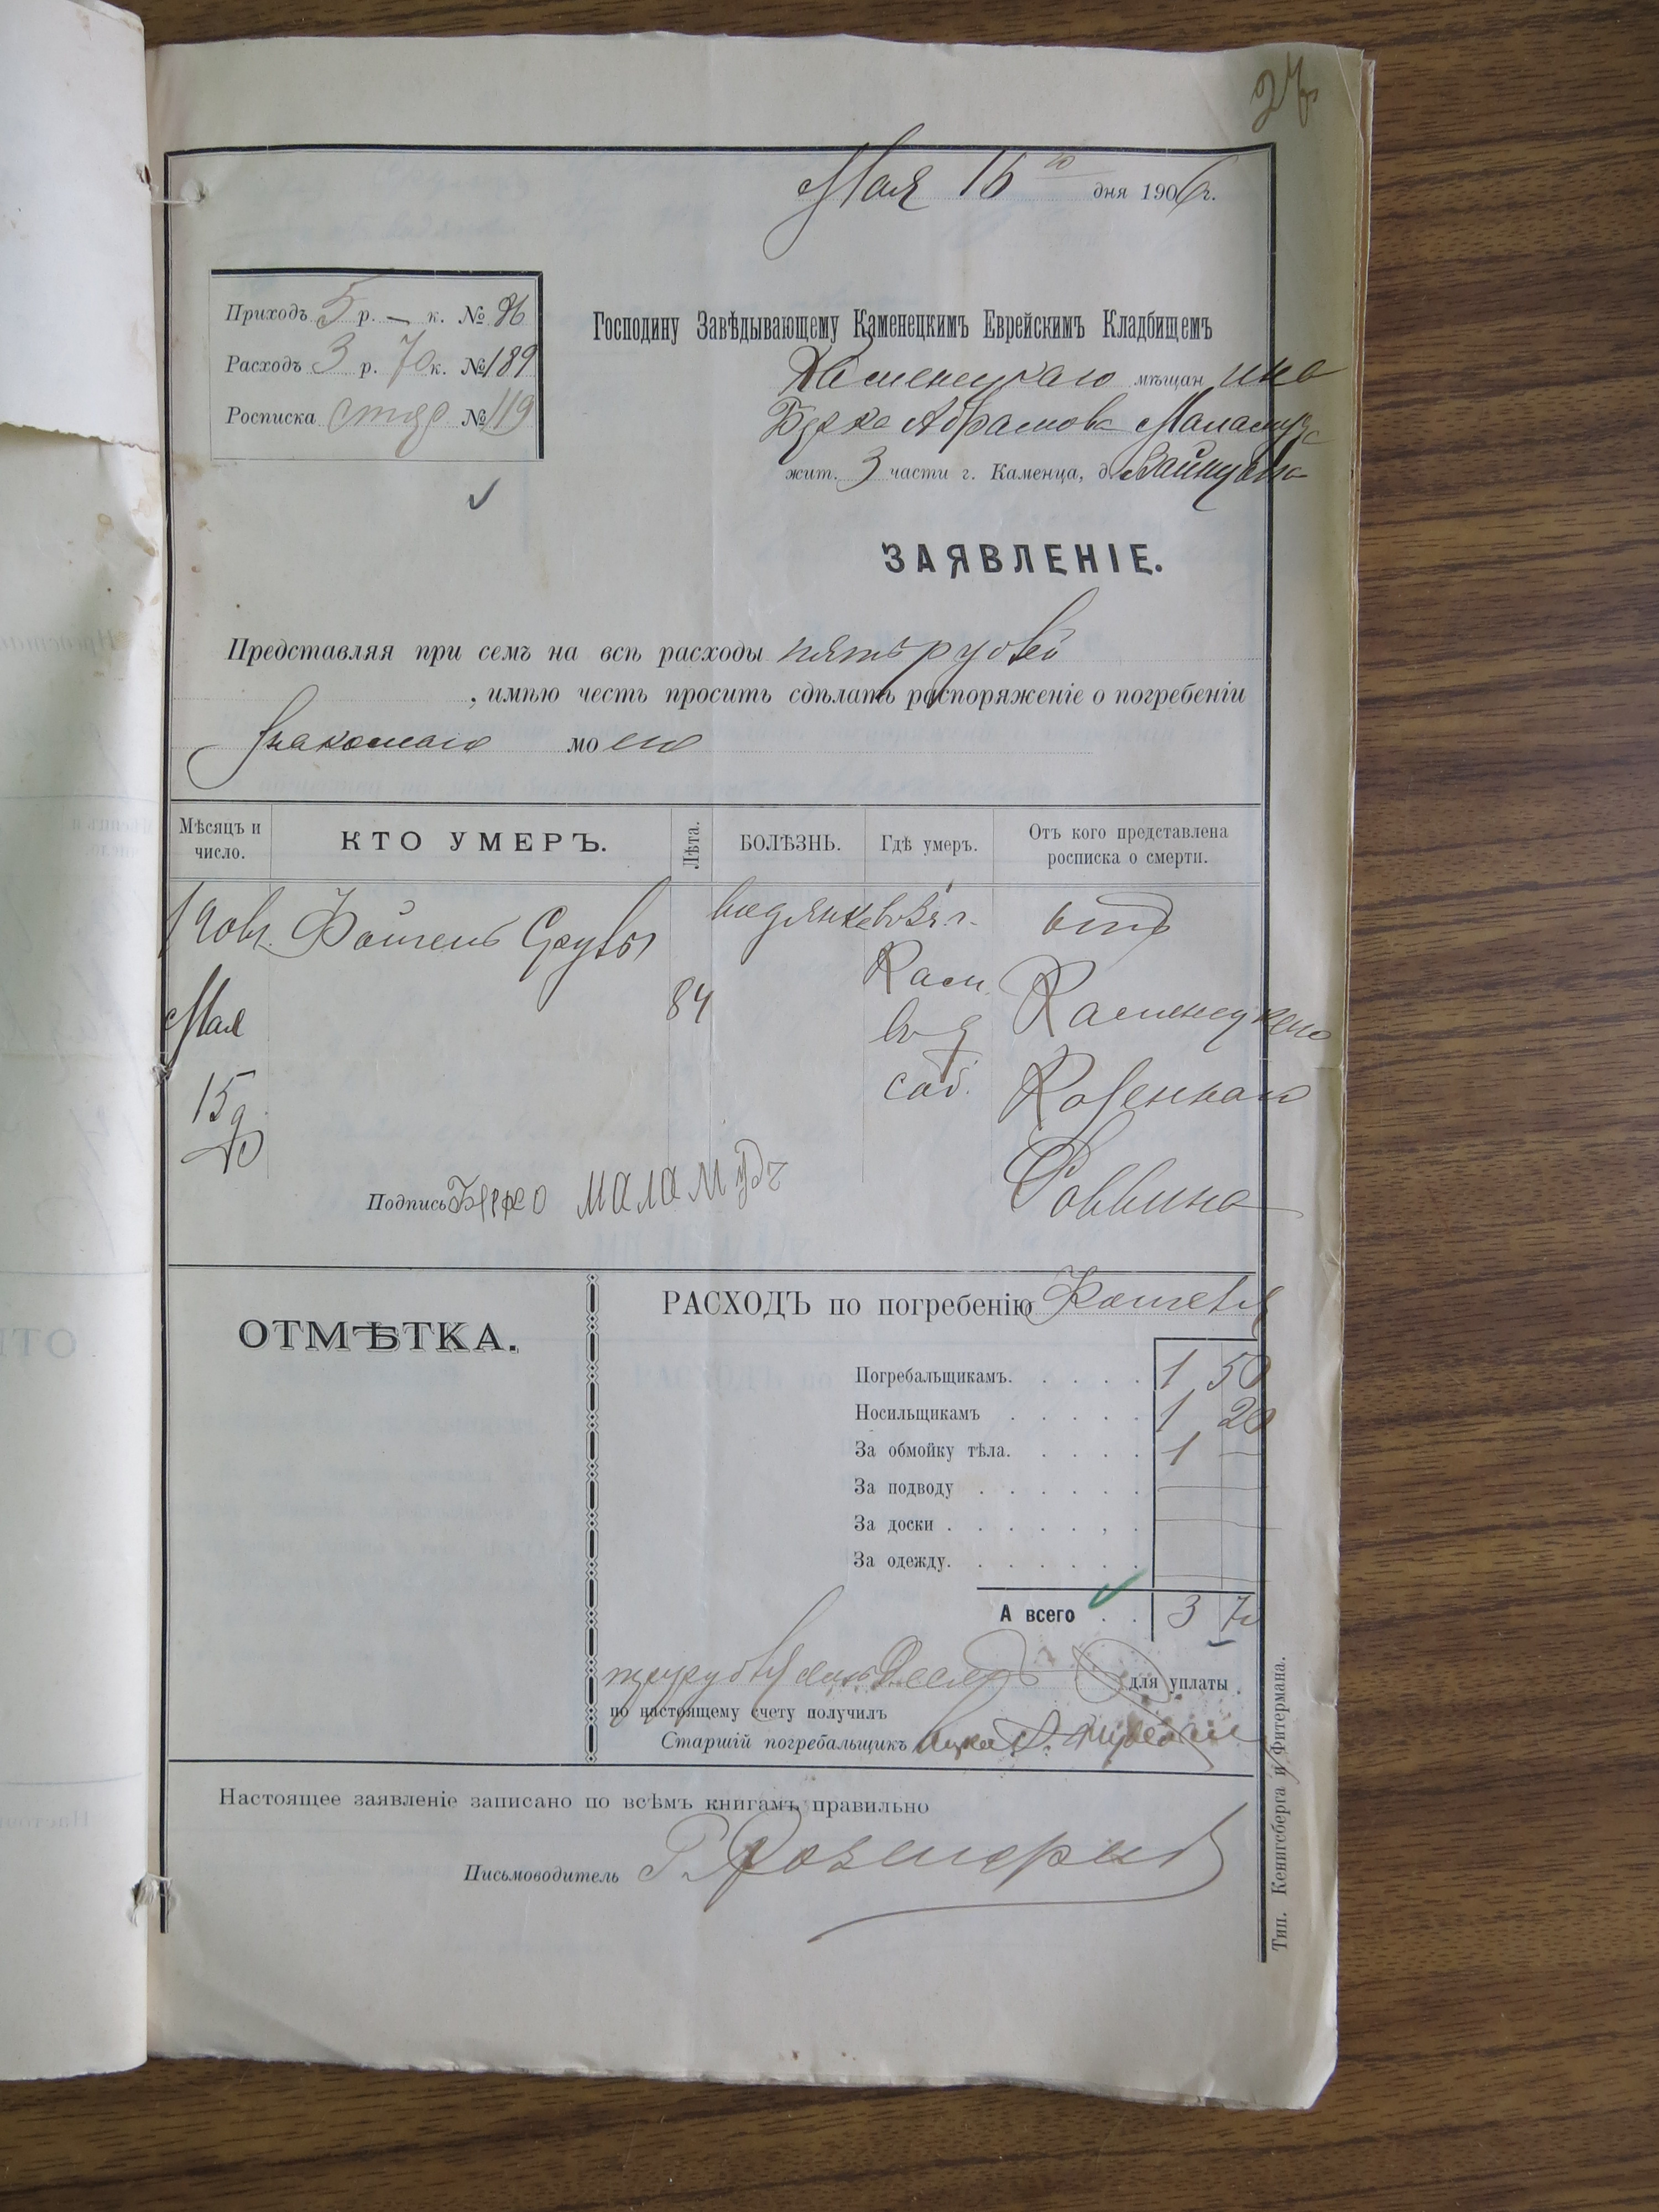 27
Мая 16го дня 1906 г.
Приходъ 5 р. — к. № 86
Расходъ 3 р. 70 к. № 189
Росписка отдр № 119
Господину Завѣдывающему Каменецкимъ Еврейскимъ Кладбищемъ
Каменецкаго мѣщанина
Берко Абрамова Маламуда
жит. 3 части г. Каменца, д.
ЗАЯВЛЕНІЕ.
Представляя при семъ на всѣ расходы пять рублей
, имѣю честь просить сдѣлать распоряженіе о погребеніи
Знакомаго моего
Мѣсяцъ и число.
КТО УМЕРЪ.
Лѣта.
БОЛѢЗНЬ.
Гдѣ умеръ.
Отъ кого представлена росписка о смерти.
1906 г.
Мая
15 д
84
водянка
въ г.
Кам.
въ д
соб.
отъ
Каменецкаго
Казеннаго
Раввина
Подпись Берко Маламудъ
ОТМѢТКА.
РАСХОДЪ по погребенію
Погребальщикамъ. . . . . 1 50
Носильщикамъ . . . . . 1 20
За обмойку тѣла. . . . . 1 —
За подводу . . . . . .
За доски . . . . . , .
За одежду. . . . . . .
А всего . . 3 70
три рубля для уплаты
по настоящему счету получилъ
Старшій погребальщикъ
Настоящее заявленіе записано по всѣмъ книгамъ правильно
Письмоводитель
Тип. Кенигсберга и Фитермана.